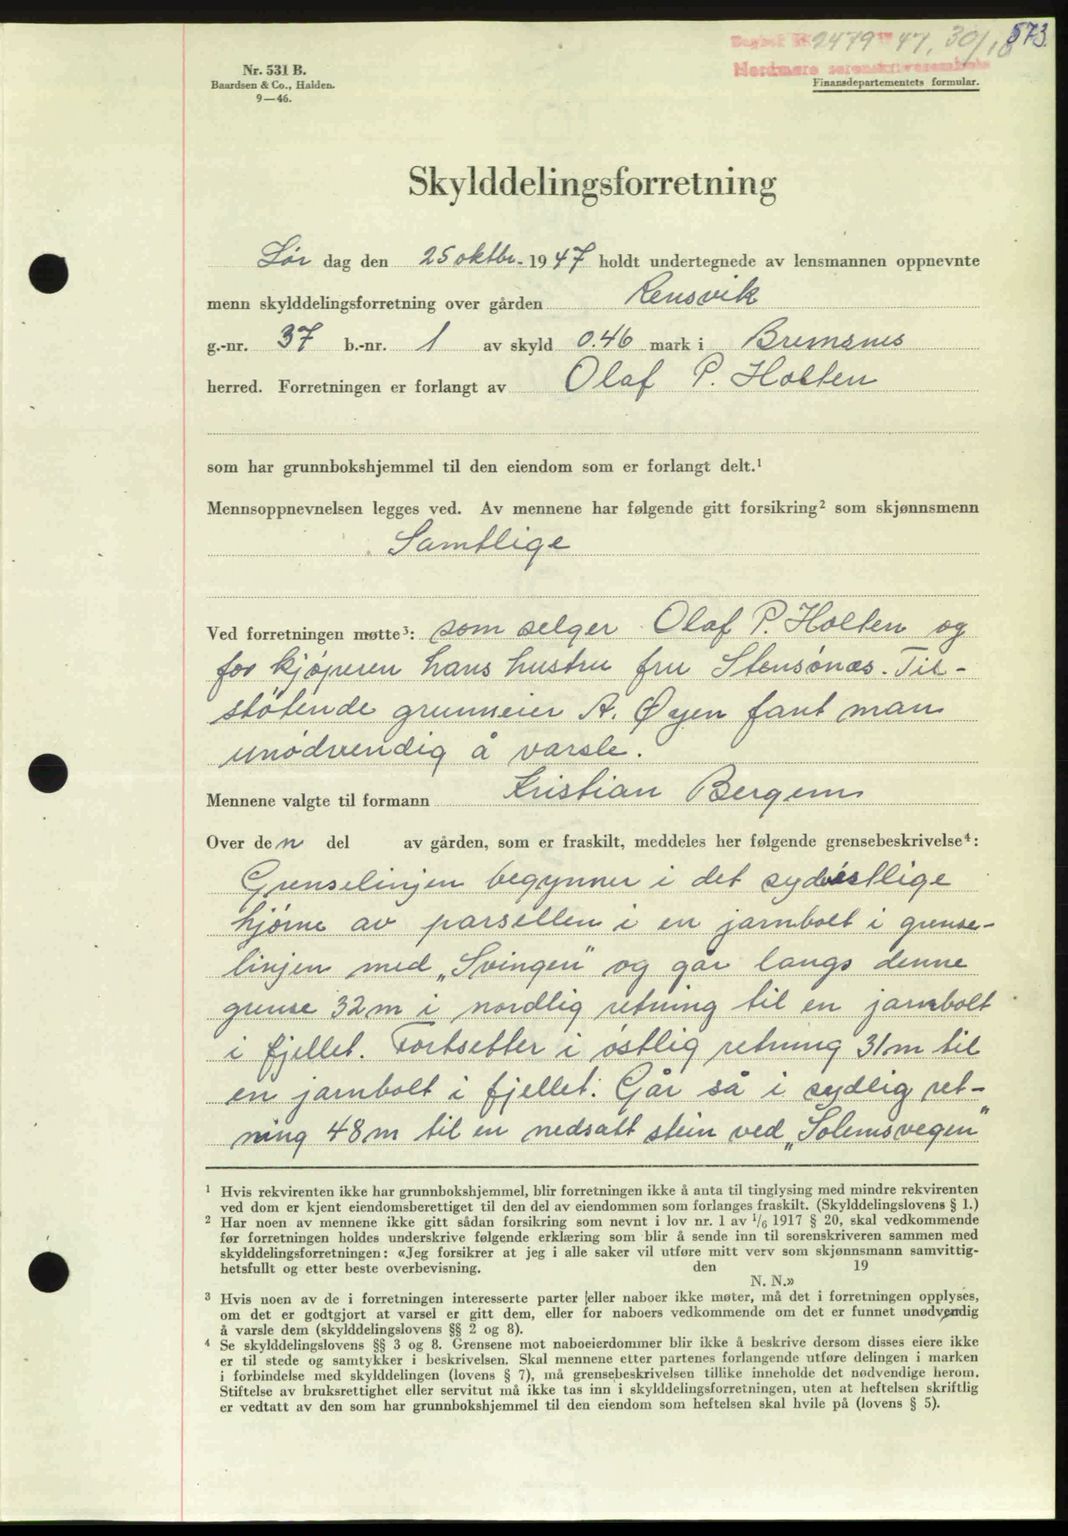 573
Dagbok nr. 2479 19 47, 30/10
Nordmøre sorenskriverembete
Nr. 531 B.
Baardsen & Co., Halden.
9—46.
Finansdepartementets formular.
Skylddelingsforretning
Lør dag den 25 oktbr. 1947 holdt undertegnede av lensmannen oppnevnte
menn skylddelingsforretning over gården Rensvik
g.-nr. 37 b.-nr. 1 av skyld 0.46 mark i Bremsnes
herred. Forretningen er forlangt av Olaf P. Holten
som har grunnbokshjemmel til den eiendom som er forlangt delt.¹
Mennsoppnevnelsen legges ved. Av mennene har følgende gitt forsikring² som skjønnsmenn
Samtlige
Ved forretningen møtte³: som selger Olaf P. Holten og
for kjøperen hans hustru fru Stensønes. Til-
støtende grunneier A. Øyen fant man
unødvendig å varsle.
Mennene valgte til formann Kristian Bergem
Over den del av gården, som er fraskilt, meddeles her følgende grensebeskrivelse⁴:
Grenselinjen begynner i det sydvestlige
hjørne av parsellen i en jarnbolt i grense-
linjen med „Svingen" og går langs denne
grense 32 m i nordlig retning til en jarnbolt
i fjellet. Fortsetter i østlig retning 31 m til
en jarnbolt i fjellet. Går så i sydlig ret-
ning 48 m til en nedsatt stein ved „Solemsvegen"
¹ Hvis rekvirenten ikke har grunnbokshjemmel, blir forretningen ikke å anta til tinglysing med mindre rekvirenten
ved dom er kjent eiendomsberettiget til den del av eiendommen som forlanges fraskilt. (Skylddelingslovens § 1.)
² Har noen av mennene ikke gitt sådan forsikring som nevnt i lov nr. 1 av 1/6 1917 § 20, skal vedkommende
før forretningen holdes underskrive følgende erklæring som blir å sende inn til sorenskriveren sammen med
skylddelingsforretningen: «Jeg forsikrer at jeg i alle saker vil utføre mitt verv som skjønnsmann samvittig-
hetsfullt og etter beste overbevisning. den 19
N. N.»
³ Hvis noen av de i forretningen interesserte parter eller naboer ikke møter, må det i forretningen opplyses,
om det er godtgjort at varsel er gitt dem, eller for naboers vedkommende om det er funnet unødvendig
å varsle dem (skylddelingslovens §§ 2 og 8).
⁴ Se skylddelingslovens §§ 3 og 8. Grensene mot naboeierdommer blir ikke å beskrive dersom disses eiere ikke
er til stede og samtykker i beskrivelsen. Skal mennene etter partenes forlangende utføre delingen i marken
i forbindelse med skylddelingen (lovens § 7), må grensebeskrivelsen tillike inneholde det nødvendige herom.
Stiftelse av bruksrettighet eller servitut må ikke tas inn i skylddelingsforretningen, uten at heftelsen skriftlig
er vedtatt av den som har grunnbokshjemmel til den eiendom som heftelsen skal hvile på (lovens § 5).